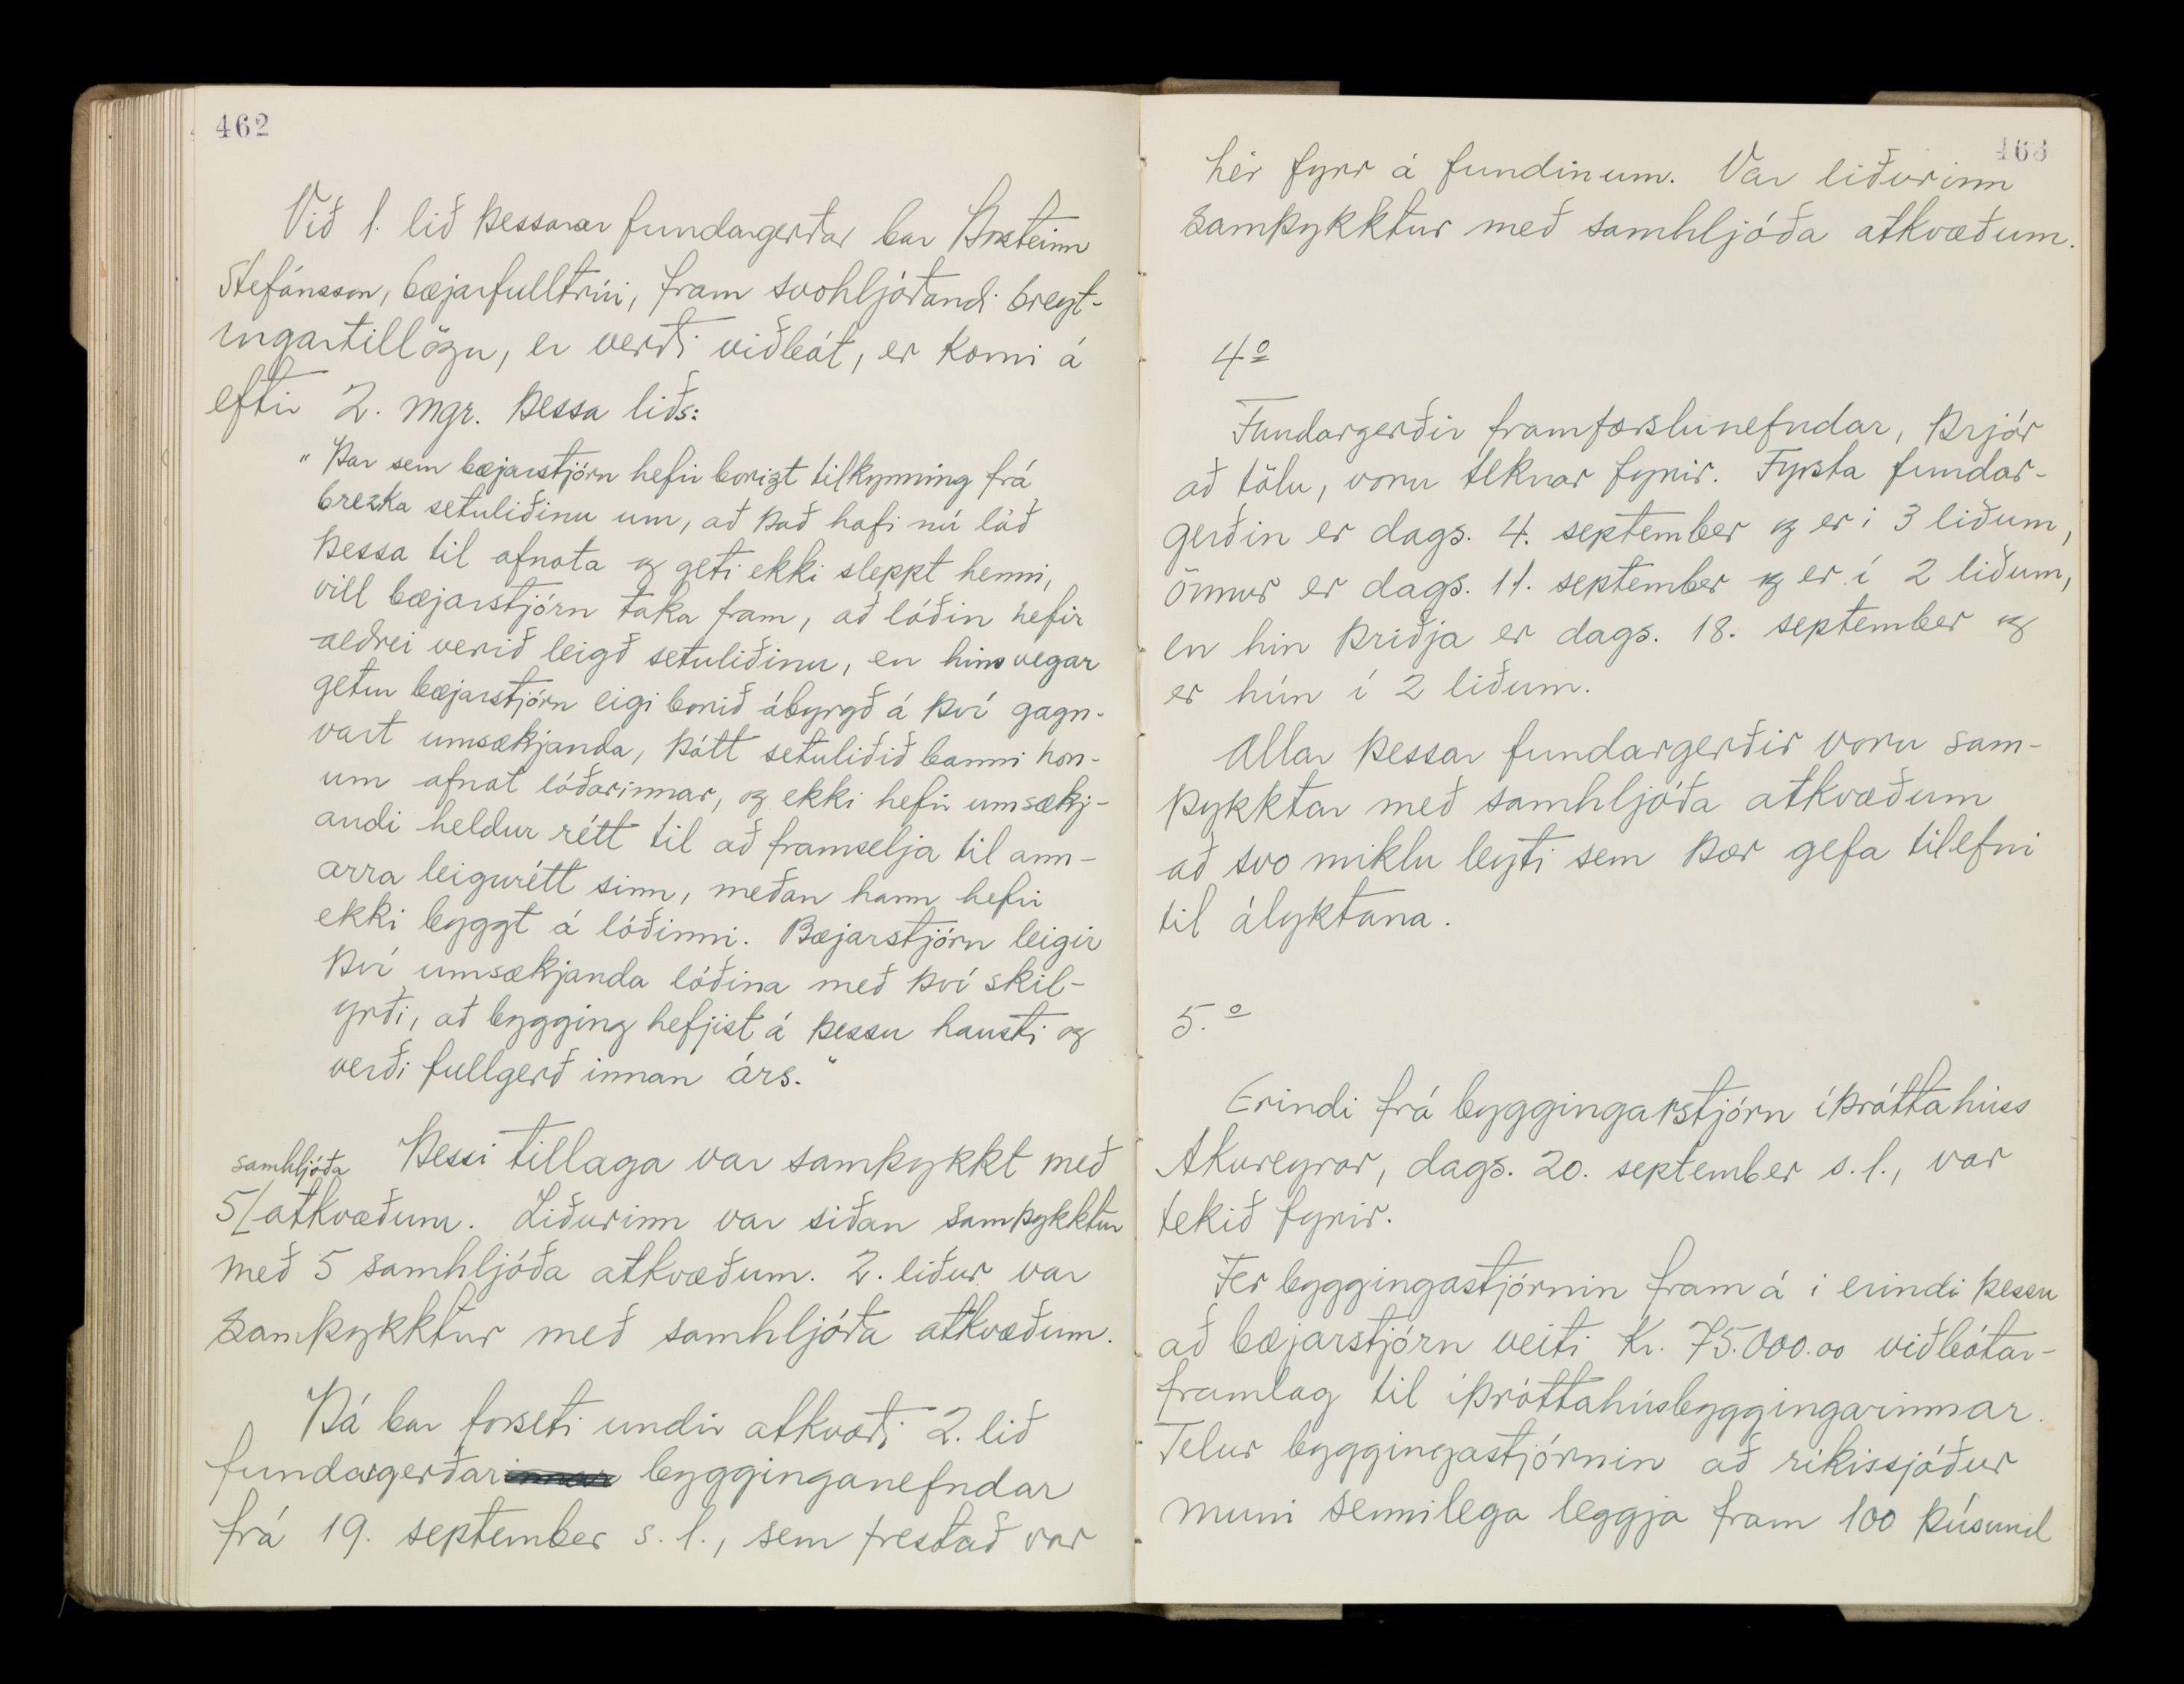 462
Við 1. lið þessarar fundargerðar bar Þorsteinn
Stefánsson, bæjarfulltrúi, fram svohljóðandi breyt-
ingartillögu, er verði viðbót, er komi á
eftir 2. mgr. þessa liðs:
"Þar sem bæjarstjórn hefir borizt tilkynning frá
brezka setuliðinu um, að það hafi nú lóð
þessa til afnota og geti ekki sleppt henni,
vill bæjarstjórn taka fram, að lóðin hefir
aldrei verið leigð setuliðinu, en hins vegar
getur bæjarstjórn eigi borið ábyrgð á því gagn-
vart umsækjanda, þótt setuliðið banni hon-
um afnot lóðarinnar, og ekki hefir umsækj-
andi heldur rétt til að framselja til ann-
arra leigurétt sinn, meðan hann hefir
ekki byggt á lóðinni. Bæjarstjórn leigir
því umsækjanda lóðina með því skil-
yrði, að bygging hefjist á þessu hausti og
verði fullgerð innan árs."
samhljóða Þessi tillaga var samþykkt með
5 atkvæðum. Liðurinn var síðan samþykktur
með 5 samhljóða atkvæðum. 2. liður var
samþykktur með samhljóða atkvæðum.
Þá bar forseti undir atkvæði 2. lið
fundargerðarinnar bygginganefndar
frá 19. september s.l., sem frestað var
463
hér fyrr á fundinum. Var liðurinn
samþykktur með samhljóða atkvæðum.
4º
Fundargerðir framfærslunefndar, þrjár
að tölu, voru teknar fyrir. Fyrsta fundar-
gerðin er dags. 4. september og er í 3 liðum,
önnur er dags. 11. september og er í 2 liðum,
en hin þriðja er dags. 18. september og
er hún í 2 liðum.
Allar þessar fundargerðir voru sam-
þykktar með samhljóða atkvæðum
að svo miklu leyti sem þær gefa tilefni
til ályktana.
5.º
Erindi frá byggingarstjórn íþróttahúss
Akureyrar, dags. 20. september s.l., var
tekið fyrir.
Fer byggingastjórnin fram á í erindi þessu
að bæjarstjórn veiti kr. 75.000.00 viðbótar-
framlag til íþróttahúsbyggingarinnar.
Telur byggingastjórnin að ríkissjóður
muni sennilega leggja fram 100 þúsund